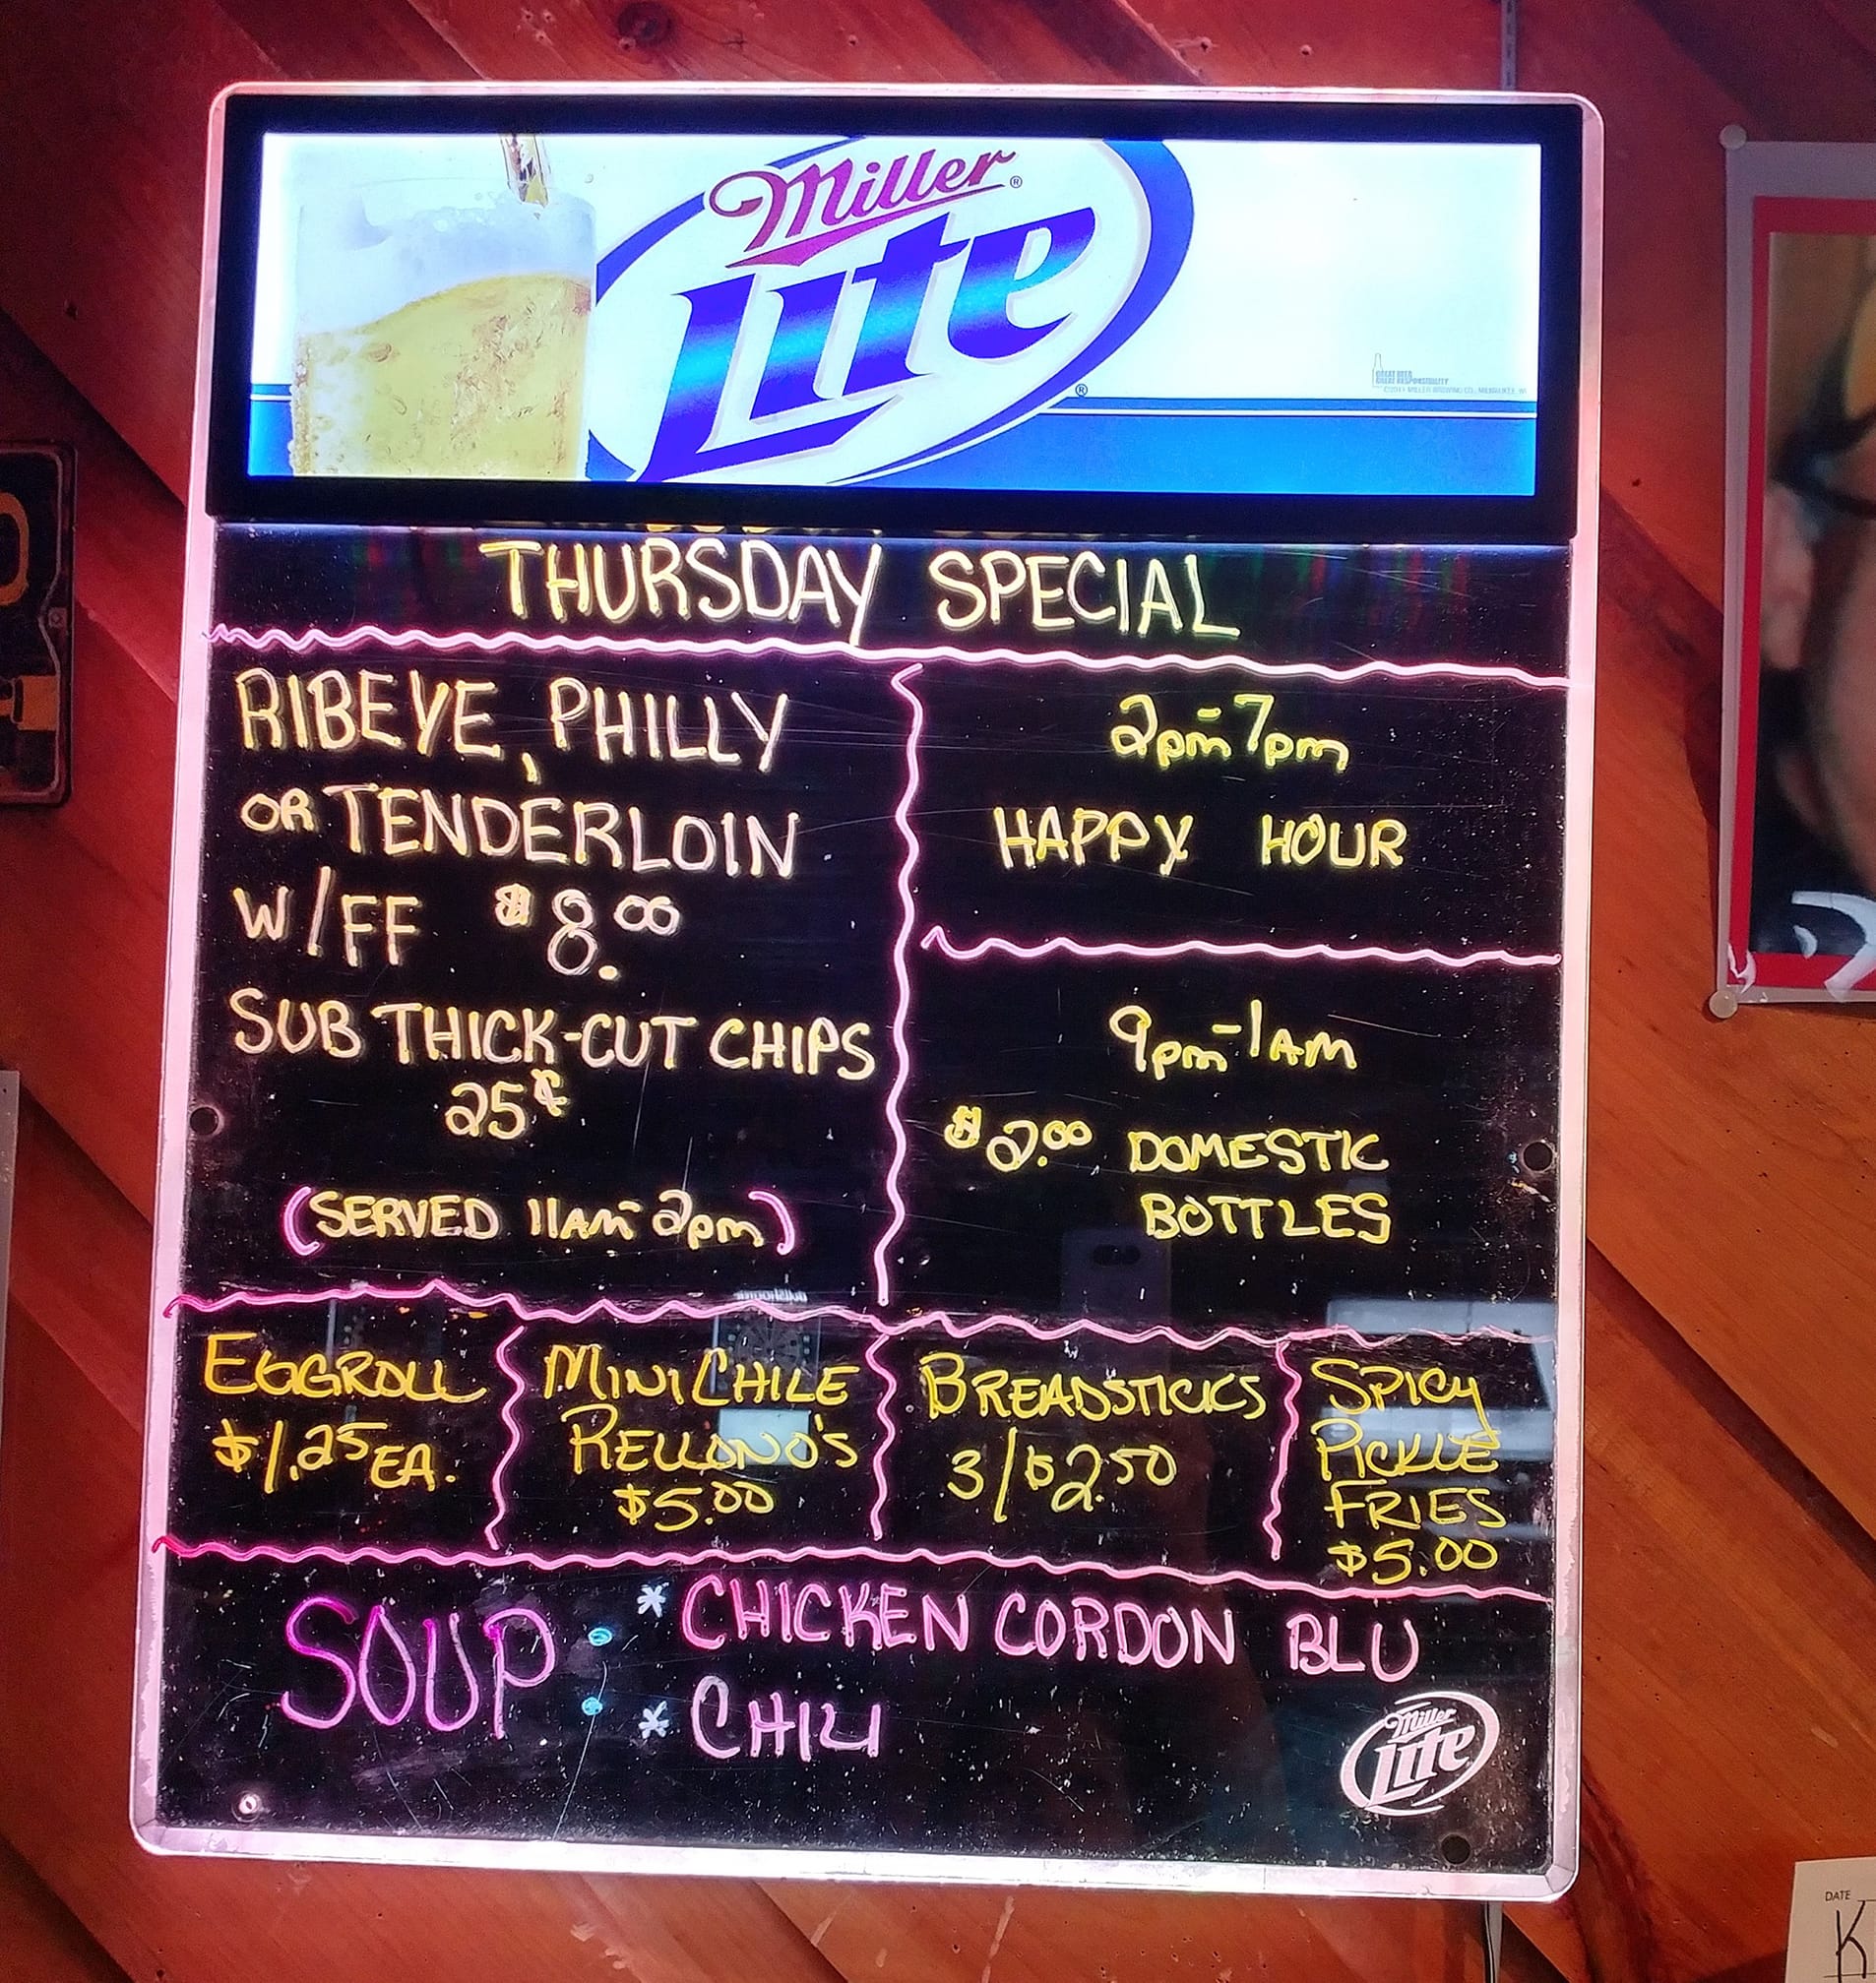 Miller
Lite
GREAT BEER
GREAT RESPONSIBILITY
THURSDAY SPECIAL
RIBEYE, PHILLY
OR TENDERLOIN
W/FF $8.00
SUB THICK-CUT CHIPS
25¢
(SERVED 11AM-2pm)
2pm-7pm
HAPPY HOUR
9pm-1AM
$2.00 DOMESTIC
BOTTLES
EGGROLL
$1.25 EA.
MINI CHILE
RELLONO'S
$5.00
BREADSTICKS
3/$2.50
SPICY
PICKLE
FRIES
$5.00
SOUP:
* CHICKEN CORDON BLU
* CHILI
Miller
Lite
DATE
K